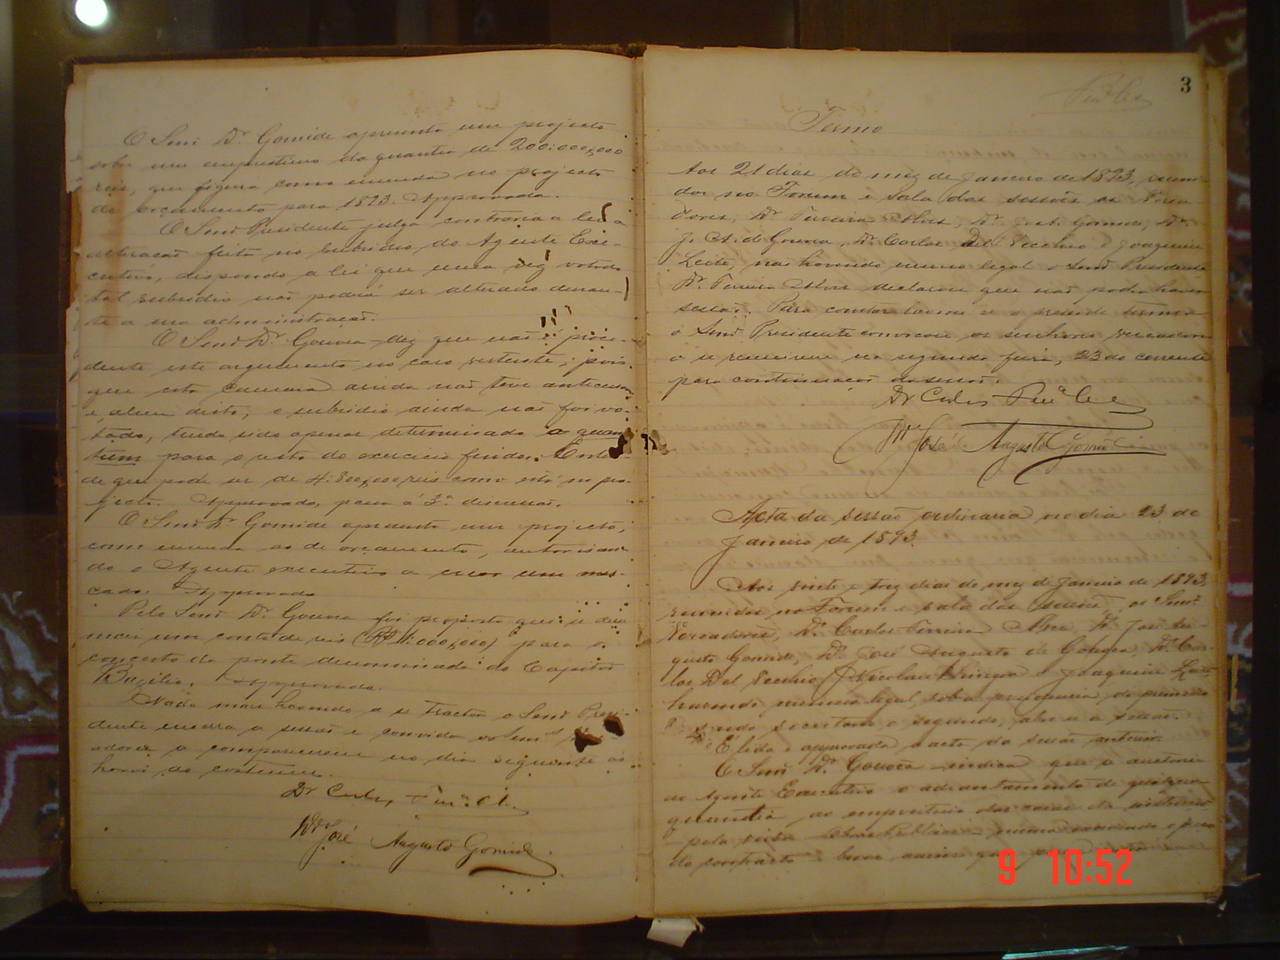 O Senr. Dr. Gomide apresenta um projecto
sobre um emprestimo da quantia de 200:000,000
reis, que figura como emenda no projecto
de orçamento para 1893. Approvado.
O Senr. Presidente julga contraria a lei a
alteração feita no subsidio do Agente Exe-
cutivo, dispondo a lei que uma vez votado
tal subsidio não poderá ser alterado duran-
te a sua administração.
O Senr. Dr. Gouvêa diz que não é proce-
dente este argumento no caso vertente; pois
que esta camara ainda não tem antecessora
e, alem disto, o subsidio ainda não foi vo-
tado, tendo sido apenas determinado o quan
tum para o resto do exercicio findo. Enten-
de que pode ser de 4:800,000 reis como está no pro-
jecto. Approvado, passa á 3ª discussão.
O Senr. Dr. Gomide apresenta um projecto,
como emenda ao de orçamento, autorisan-
do o Agente executivo a crear um mer-
cado. Approvado.
Pelo Senr. Dr. Gouvea foi proposto que se
um conto de reis (R$ 1:000,000) para o
concerto da ponte denominada do Capitão
Bazilio. Approvada.
Nada mais havendo a se tractar o Senr. Presi-
dente encerra a sessão e convida os Senrs.
adores a comparecerem no dia seguinte ás
horas do costume.
Dr Carlos
Dr José Augusto Gomide
3
Termo
Aos 21 dias do mez de Janeiro de 1893, reuni-
dos no Forum e sala das sessões os Verea-
dores, Dr. Ferreira Alves, Dr. José Gomide, Dr.
J. A. de Gouvea, Dr. Carlos Del Vecchio e Joaquim
Leite, não havendo numero legal o Senr. Presidente
Dr. Ferreira Alves declarou que não podia haver
sessão. Para constar lavrou-se o presente termo
o Senr. Presidente convocou os senhores vereadores
a se reunirem na segunda feira, 23 do corrente
para continuação da sessão.
Dr Carlos
Dr José Augusto Gomide
Acta da sessão ordinaria no dia 23 de
Janeiro de 1893
Aos vinte e trez dias do mez de Janeiro de 1893,
reunidos no Forum e sala das sessões, os Senrs.
Vereadores, Dr. Carlos Ferreira Alves, Dr. José Au-
gusto Gomide, Dr. José Augusto de Gouvea, Dr. Car-
los Del Vecchio, Nicolau e Joaquim Leite,
havendo numero legal, sob a presidencia do primeiro
e sendo secretario o segundo, abre-se a sessão.
E' lida e approvada a acta da sessão anterior.
O Senr. Dr. Gouvêa indica que se auctorise
ao Agente Executivo o adiantamento de qualquer
quantia ao empreiteiro
pela
do contracto
9 10:52